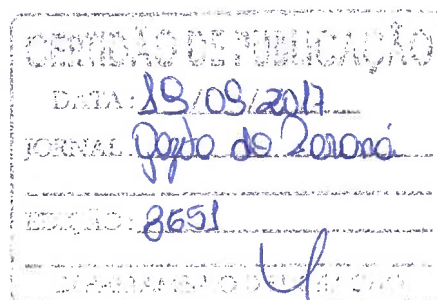 CERTIDÃO DE PUBLICAÇÃO
DATA: 19/09/2017
JORNAL: Gazeta do Paraná
EDIÇÃO: 8651